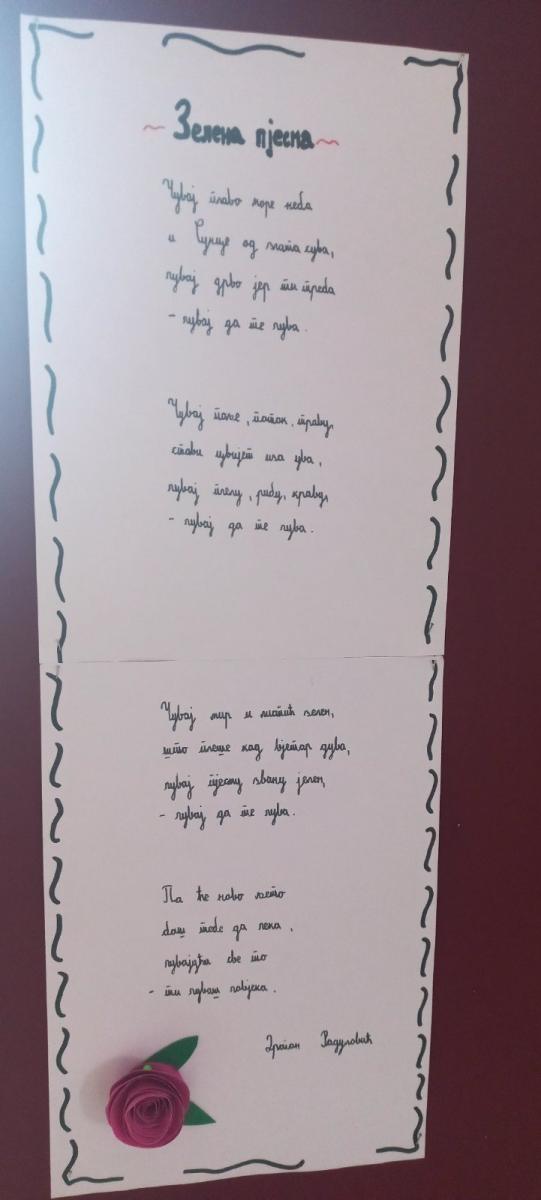 ~ Зелена пјесма ~
Чувај плаво море неба
и Сунце од злата сува,
чувај дрво јер ти треба
- чувај да те чува.
Чувај поље, поток, траву,
стави цвијет иза ува,
чувај пчелу, рибу, краву,
- чувај да те чува.
Чувај мир и листић зелен,
што плеше кад вјетар дува,
чувај пјесму звану јелен,
- чувај да те чува.
Па ће ново љето
баш тебе да чека,
чувајући све то
- ти чуваш човјека.
Драган Радуловић